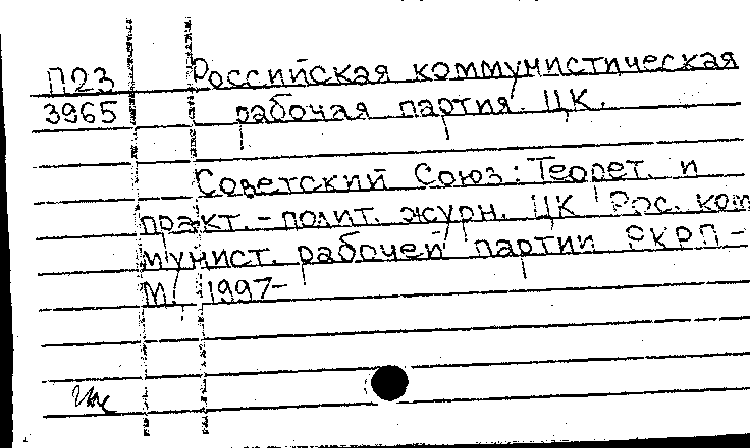 П23 Российская коммунистическая
3965 рабочая партия. ЦК.
Советский Союз: Теорет. и
практ.-полит. журн. ЦК Рос. ком
мунист. рабочей партии РКРП -
М., 1997-